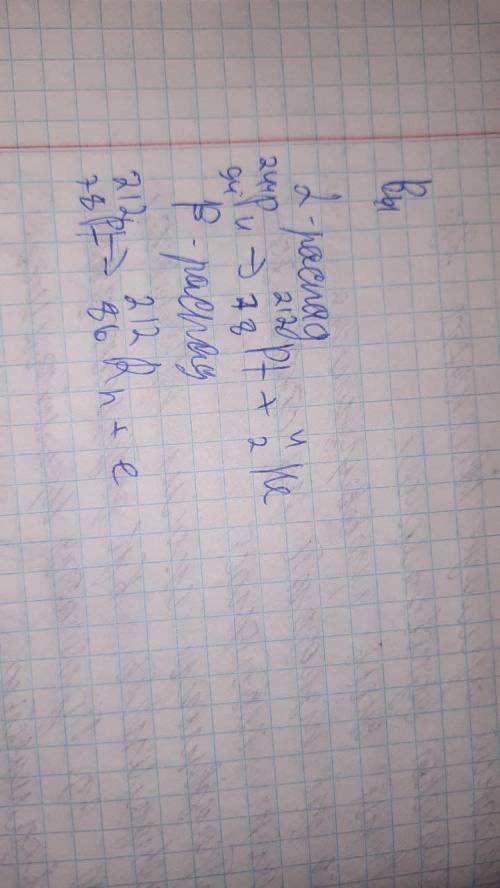 Вы
α-распад
²⁴⁴₉₄Pu → ²¹²₇₈Pt + ⁴₂He
β-распад
²¹²₇₈Pt → ²¹²₈₆Rn + e